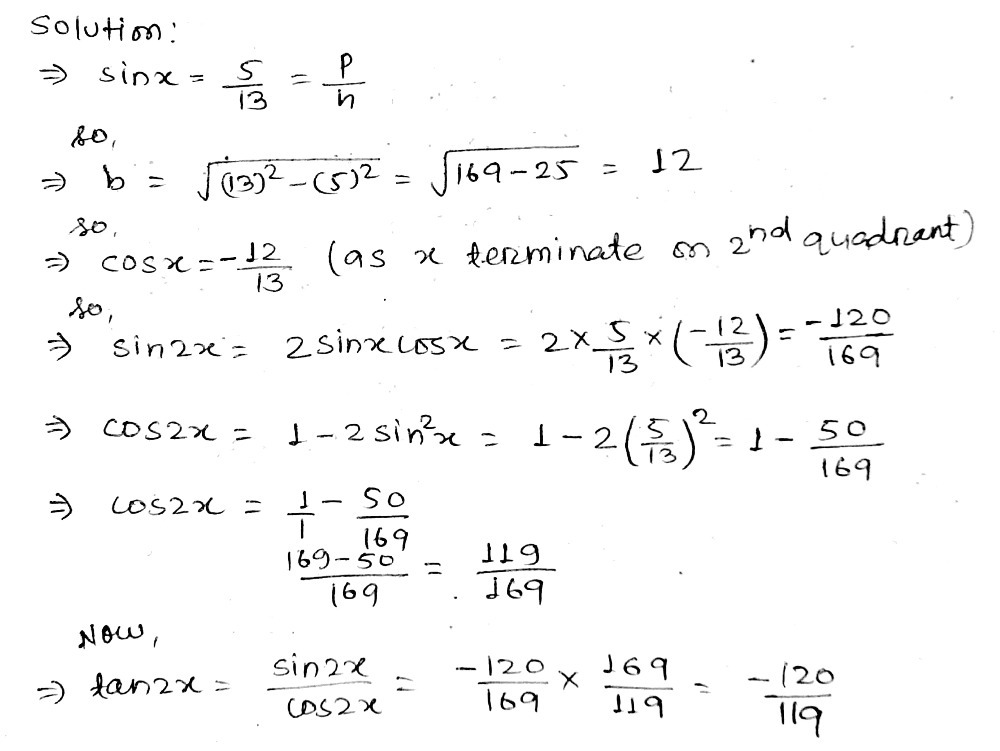 Solution:
⇒ sinx = 5/13 = p/h
so,
⇒ b = √((13)² - (5)²) = √(169 - 25) = 12
so,
⇒ cosx = -12/13 (as x terminate on 2nd quadrant)
so,
⇒ sin2x = 2sinxcosx = 2 × 5/13 × (-12/13) = -120/169
⇒ cos2x = 1 - 2sin²x = 1 - 2(5/13)² = 1 - 50/169
⇒ cos2x = 1/1 - 50/169
169-50/169 = 119/169
Now,
⇒ tan2x = sin2x/cos2x = -120/169 × 169/119 = -120/119